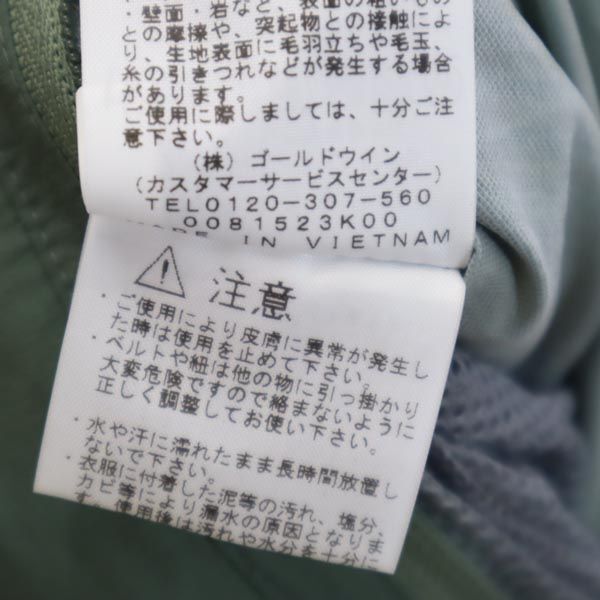 ・壁面・岩など、表面の粗いもの
との摩擦や、突起物との接触によ
り、生地表面に毛羽立ちや毛玉、
糸の引きつれなどが発生する場合
があります。
ご使用に際しましては、十分ご注
意下さい。
(株) ゴールドウイン
(カスタマーサービスセンター)
TEL0120-307-560
0081523K00
MADE IN VIETNAM
注意
・ご使用により皮膚に異常が発生し
た時は使用を止めて下さい。
・ベルトや紐は他の物に引っ掛かり
大変危険ですので絡まないように
正しく調整してお使い下さい。
・水や汗に濡れたまま長時間放置し
ないで下さい。
・衣服に付着した泥等の汚れ、塩分、
カビ等により漏水の原因となりま
す。使用後は汚れや水分を十分に